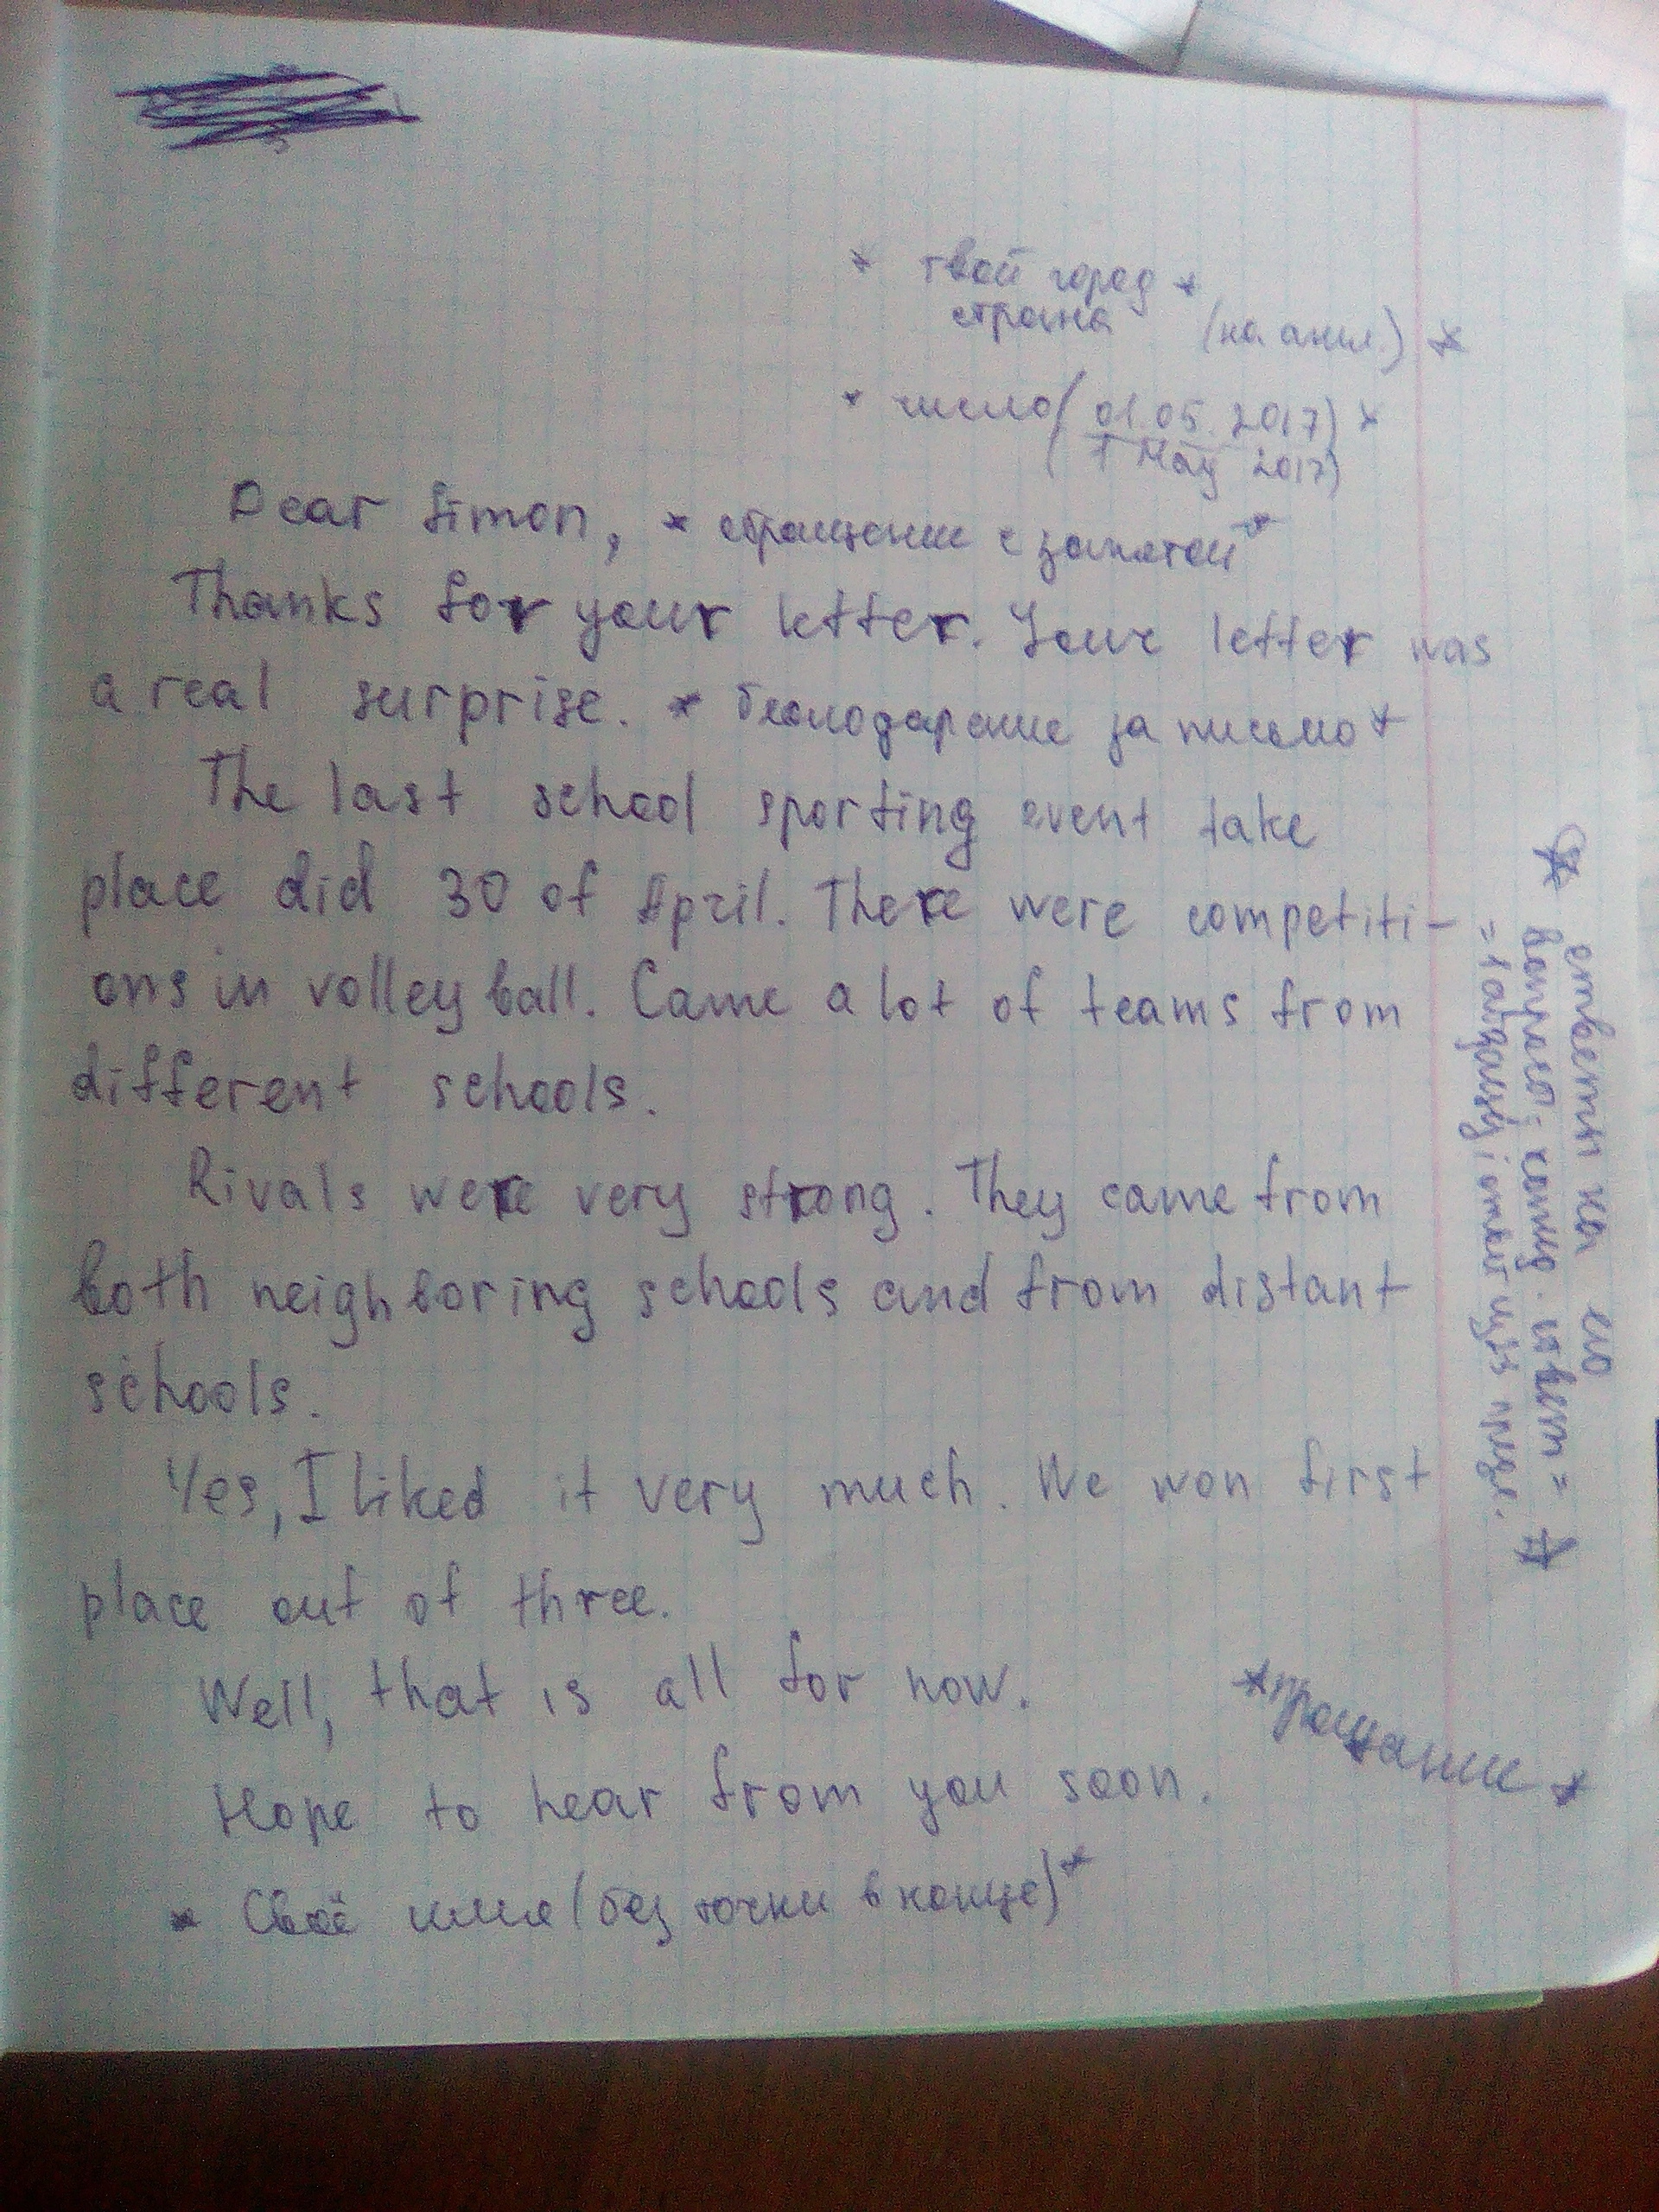 * твой город *
страна (на англ.) *
* число (01.05.2017) *
(1 May 2017)
Dear Simon, * обращение с запятой *
Thanks for your letter. Your letter was
a real surprise. * благодарение за письмо *
The last school sporting event take
place did 30 of April. There were competiti-
ons in volleyball. Came a lot of teams from
different schools.
Rivals were very strong. They came from
both neighboring schools and from distant
schools.
Yes, I liked it very much. We won first
place out of three.
Well, that is all for now.
* прощание *
Hope to hear from you soon.
* Своё имя (без точки в конце) *
* ответы на его
вопросы; кажд. ответ =
= 1 абзацу